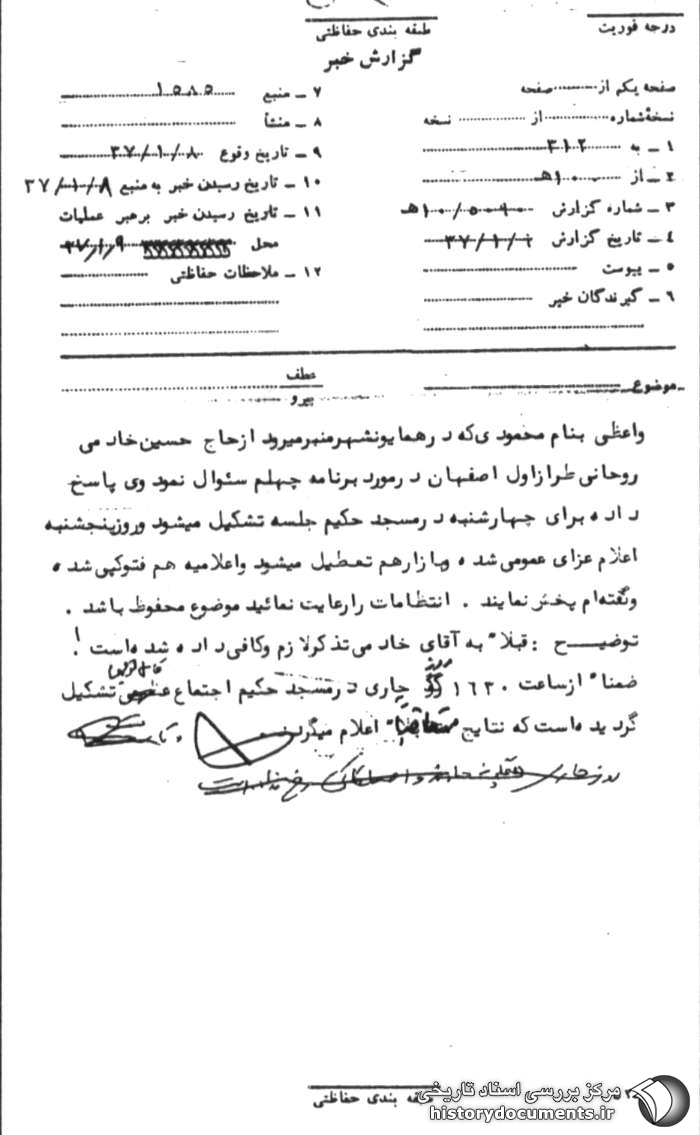 درجه فوریت
طبقه بندی حفاظتی
گزارش خبر
صفحه یکم از ........ صفحه
نسخهٔ شماره ........ از ........ نسخه
۱ ـ به ۳۱۲
۲ ـ از ۱۰هـ
۳ ـ شماره گزارش
۴ ـ تاریخ گزارش
۵ ـ پیوست
۶ ـ گیرندگان خبر
۷ ـ منبع ۱۵۸۵
۸ ـ منشأ
۹ ـ تاریخ وقوع ۳۷/۱/۸
۱۰ ـ تاریخ رسیدن خبر به منبع ۳۷/۱/۸
۱۱ ـ تاریخ رسیدن خبر برهبر عملیات
محل ۳۷/۱/۹
۱۲ ـ ملاحظات حفاظتی
موضوع
عطف
پیرو
واعظی بنام محمودی که در همایونشهر منبر میرود از حاج حسین خادمی
روحانی طراز اول اصفهان در مورد برنامه چهلم سئوال نمود وی پاسخ
داده برای چهارشنبه در مسجد حکیم جلسه تشکیل میشود و روز پنجشنبه
اعلام عزای عمومی شده و بازار هم تعطیل میشود و اعلامیه هم فتوکپی شده
و گفته‌ام پخش نمایند . انتظامات را رعایت نمائید موضوع محفوظ باشد .
توضیـــح : قبلا" به آقای خادمی تذکر لازم و کافی داده شده است !
ضمنا" از ساعت ۱۶۳۰ روز جاری در مسجد حکیم اجتماع تشکیل
گردیده است که نتایج متعاقبا" اعلام میگردد
طبقه بندی حفاظتی
مرکز بررسی اسناد تاریخی
historydocuments.ir